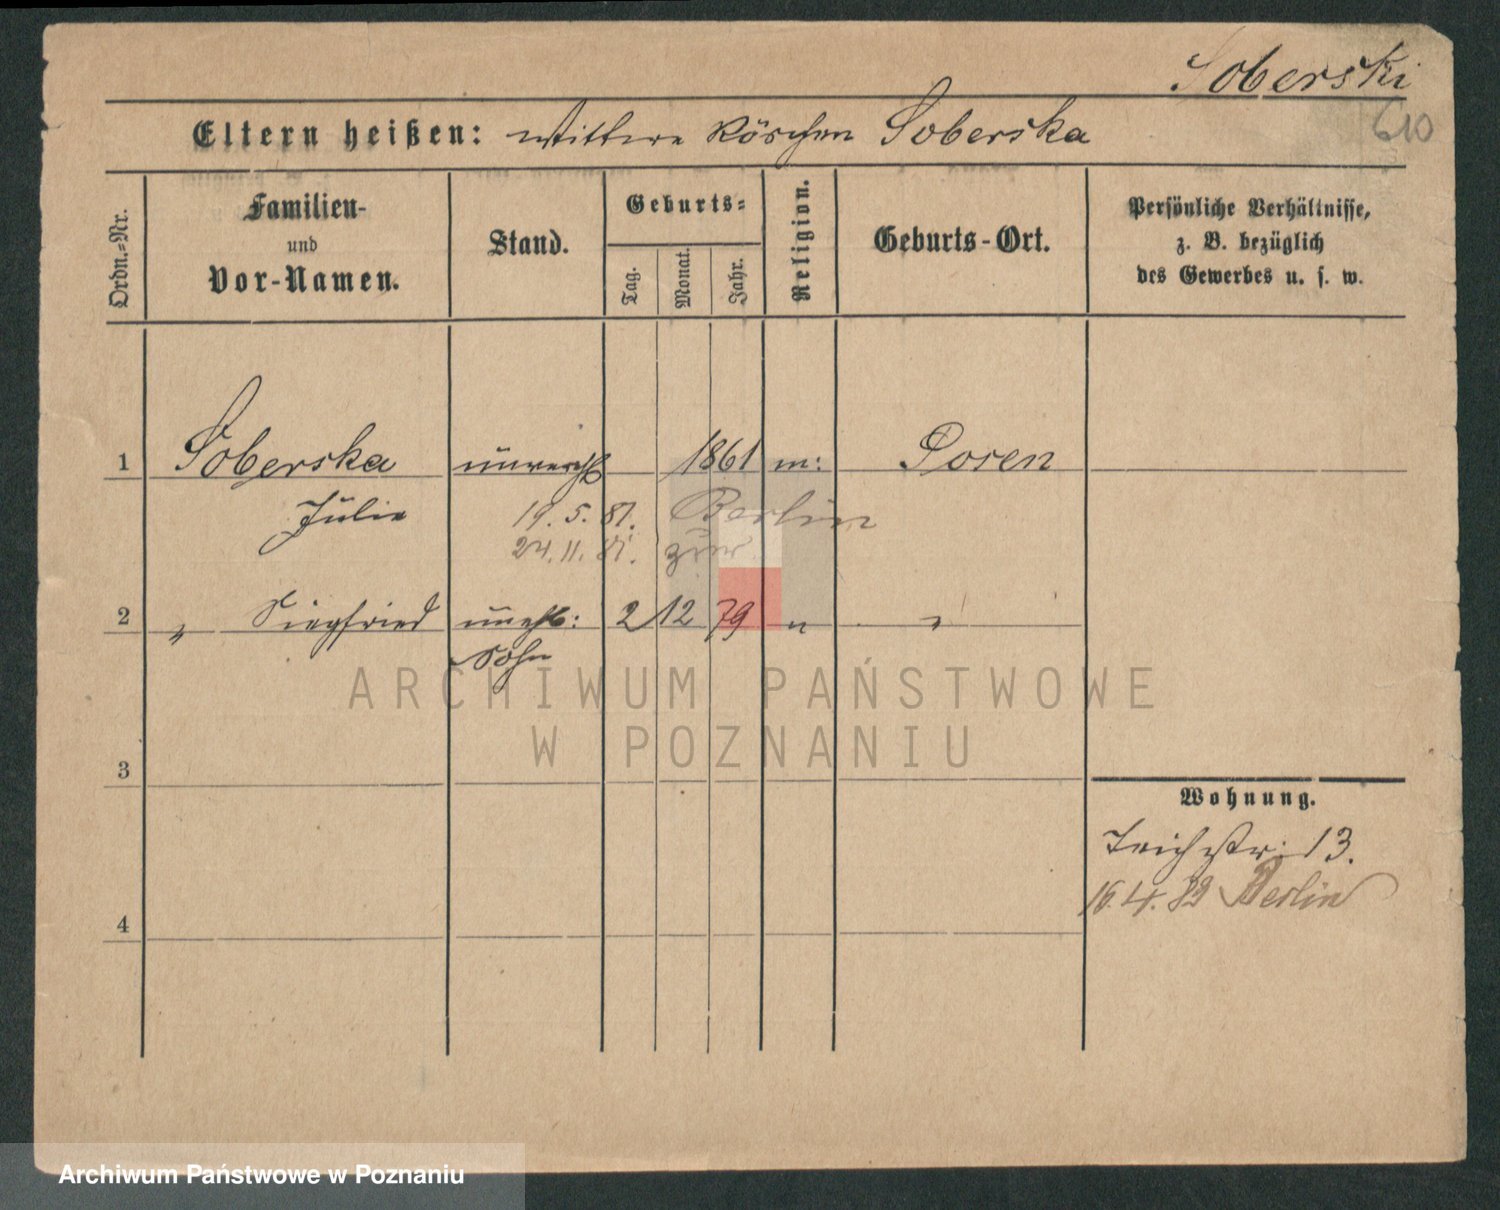 Soberski
610
Eltern heißen: Wittwe Röschen Soberska
Ordn.=Nr.
Familien-
und
Vor-Namen.
Stand.
Geburts=
Tag.
Monat.
Jahr.
Religion.
Geburts-Ort.
Persönliche Verhältnisse,
z. B. bezüglich
des Gewerbes u. s. w.
1 Soberska unvereh 1861 m: Posen
Julie 19. 5. 81. Berlin
24. 11. 81. zur
2 " Siegfried unehl: 2 12 79 " "
Sohn
ARCHIWUM PAŃSTWOWE
W POZNANIU
3
Wohnung.
Teichstr: 13.
16. 4. 82 Berlin
4
Archiwum Państwowe w Poznaniu